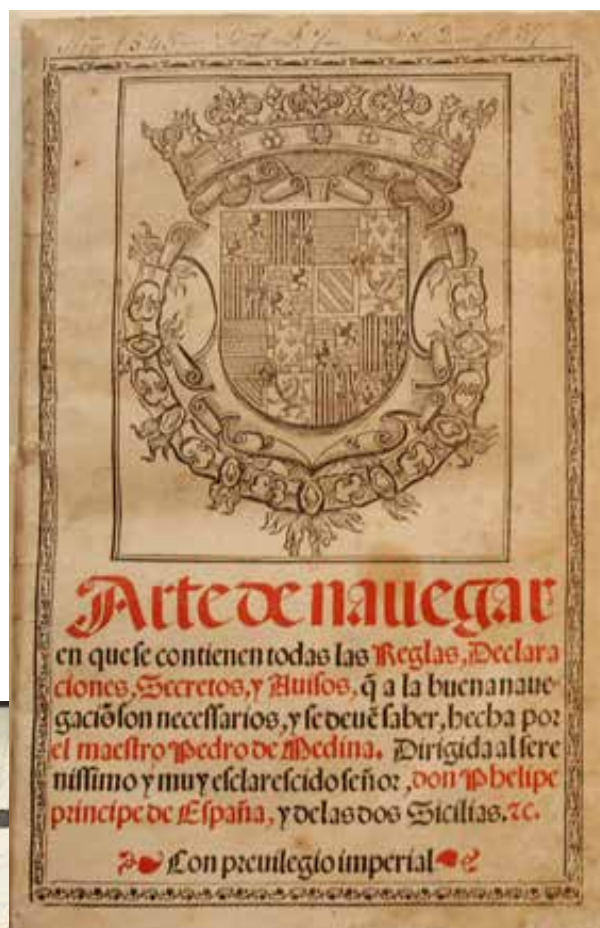 Año 1545
Arte de nauegar
en que se contienen todas las Reglas, Declara
ciones, Secretos, y Auisos, q̃ a la buena naue-
gaciõ son necessarios, y se deuẽ saber, hecha por
el maestro Pedro de Medina. Dirigida al sere
nissimo y muy esclarescido señor, don Phelipe
principe de España, y de las dos Sicilias. ⁊c.
Con preuilegio imperial